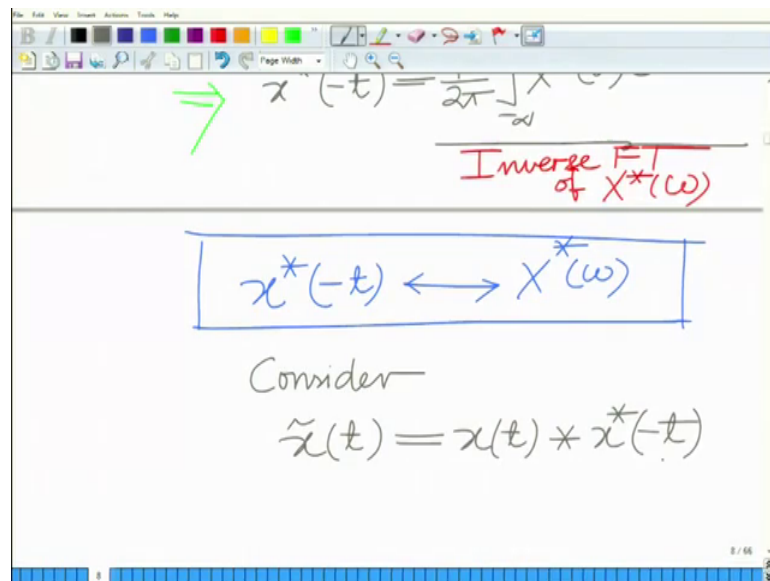 File Edit View Insert Actions Tools Help
B I
Page Width
⇒ x*(-t) = 1/2π ∫ X*(ω)
-∞
Inverse FT
of X*(ω)
x*(-t) ⟷ X*(ω)
Consider
x̃(t) = x(t) * x*(-t)
8 / 66
8